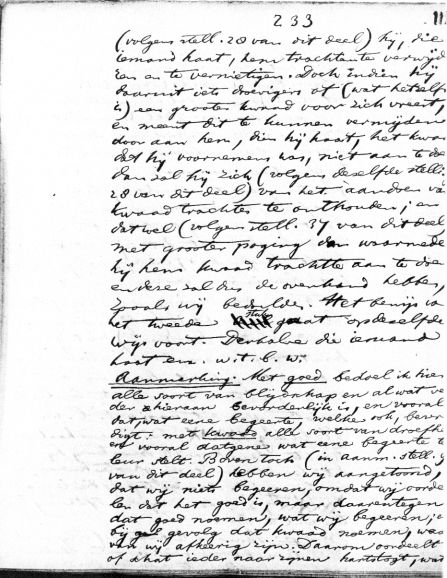 233
(volgens stell. 28 van dit deel) hij, die
iemand haat, hem trachten te verwijd
ren en te vernietigen. Doch indien hij
daaruit iets droevigers of (wat hetzelf
is) een grooter kwaad voor zich vreest,
en meent dit te kunnen vermijden
door aan hem, dien hij haat, het kwaa
dat hij voornemens was, niet aan te doe
dan zal hij zich (volgens dezelfde stell.
28 van dit deel) van het aandoen va
kwaad trachten te onthouden; en
dat wel (volgens stell. 37 van dit deel
met grooter poging dan waarmede
hij hem kwaad trachtte aan te doe
en deze zal dus de overhand hebben,
zooals wij bedoelden. Het bewijs van
het tweede stuk gaat op dezelfde
wijs voort. Derhalve die iemand
haat enz. w. t. b. w.
Aanmerking. Met goed bedoel ik hier
alle soort van blijdschap en al wat ie
der hieraan bevorderlijk is, en vooral
dat, wat eene begeerte, welke ook, bevr
digt: met kwaad alle soort van droefh
en vooral datgene wat eene begeerte te
leur stelt. Boven toch (in aanm. stell. 9
van dit deel) hebben wij aangetoond,
dat wij niets begeeren, omdat wij oorde
len dat het goed is, maar daarentegen
dat goed noemen, wat wij begeeren; en
bij gevolg dat kwaad noemen, waar
van wij afkeerig zijn. Daarom oordeelt
of schat ieder naar zijnen hartstogt, wat